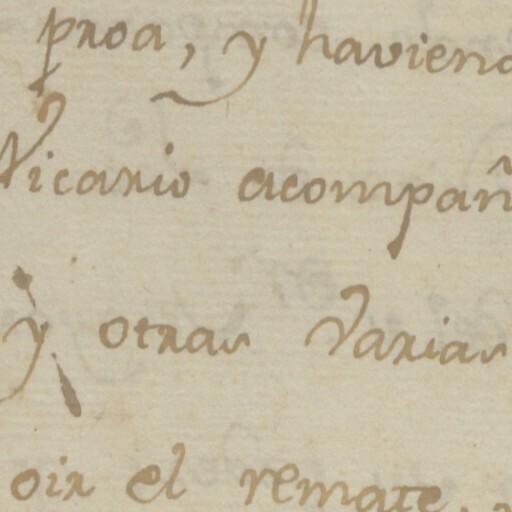 proa, y haviend
Vicario acompañ
y otras Varias
oir el remate,